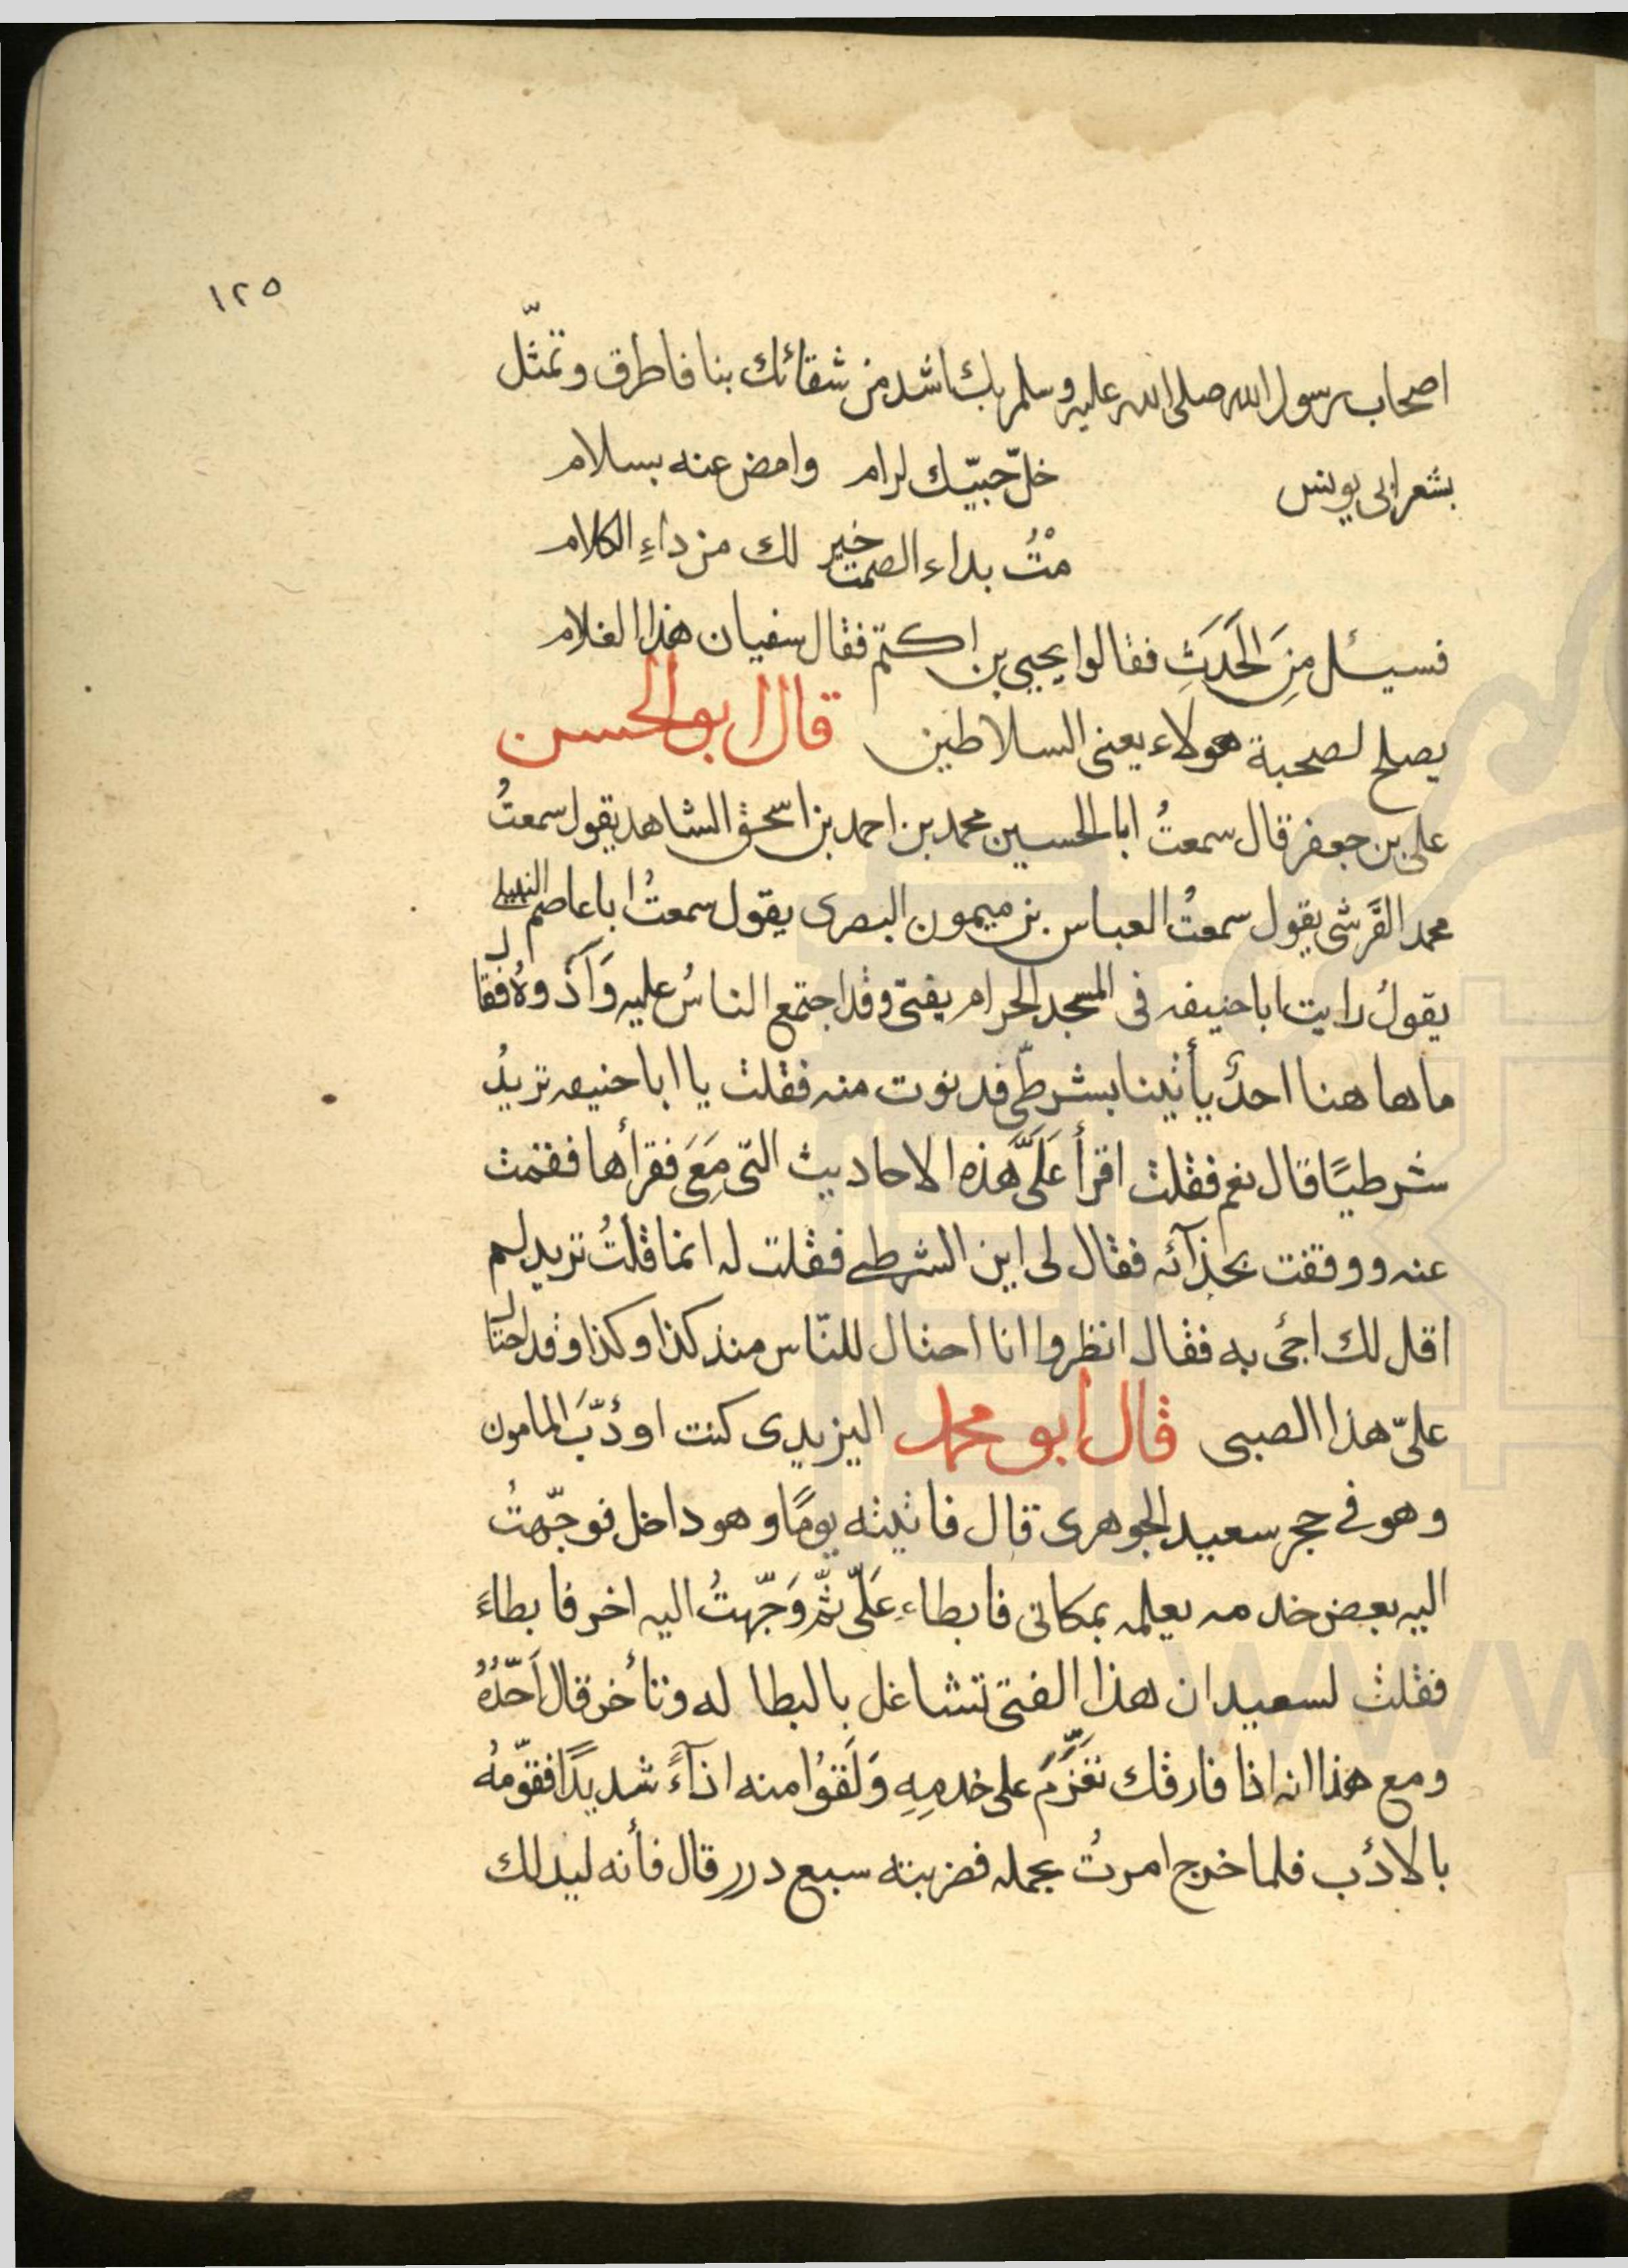 ١٢٥
اصحاب رسول الله صلى الله عليه وسلم بك اشد من شقائك بنا فاطرق وتمثّل
بشعر ابى يونس خلّ حبيّك لرام وامض عنه بسلام
مْتُ بداء الصمت خير لك من داءِ الكلام
فسيئل مِنَ الحَدَثِ فقالوا يحيى بن اكتم فقال سفيان هذا الغلام
يصلح لصحبة هولاء يعنى السلاطين قال ابو الحسن
على بن جعفر قال سمعتُ ابا الحسين محمد بن احمد بن اسحق الشاهد يقول سمعتُ
محمد القَرشى يقول سمعتُ العباس بن ميمون البصرى يقول سمعتُ ابا عاصم النبيل
يقولُ رايت ابا حنيفه فى المسجد الحرام يفتى وقد اجتمع الناسُ عليه وَآذوهُ فقال
ما ها هنا احدٌ يأتينا بشرطىّ فدنوت منه فقلت يا ابا حنيفه تريدُ
شرطيًا قال نعم فقلت اقرأ عَلَىَّ هذه الاحاديث التى مَعَى فقرأها فقمت
عنه ووقفت بحذآئه فقال لى اين الشرطى فقلت له انما قلتُ تريد لم
اقل لك اجئ به فقال انظروا انا احتال للنّاس منذ كذا وكذا وقد احتال
علىّ هذا الصبى قال ابو محمد اليزيدى كنت اودّبَ المامون
وهو فى حجر سعيد الجوهرى قال فاتيته يومًا وهو داخل فوجّهتُ
اليه بعض خدمه يعلمه بمكانى فابطاء عَلَىّ ثمّ وَجّهتُ اليه اخر فابطاءَ
فقلت لسعيد ان هذا الفتى تشاغل بالبطاله وتأخر قال اَحّدُهُ
ومع هذا انه اذا فارقك تَعَزَّمَ على خدمِهِ وَلَقَوُا منه اذآءً شديدًا فقوّمهُ
بالادَب فلما خرج امرتُ بحمله فضربته سبع درر قال فأنه ليدلك